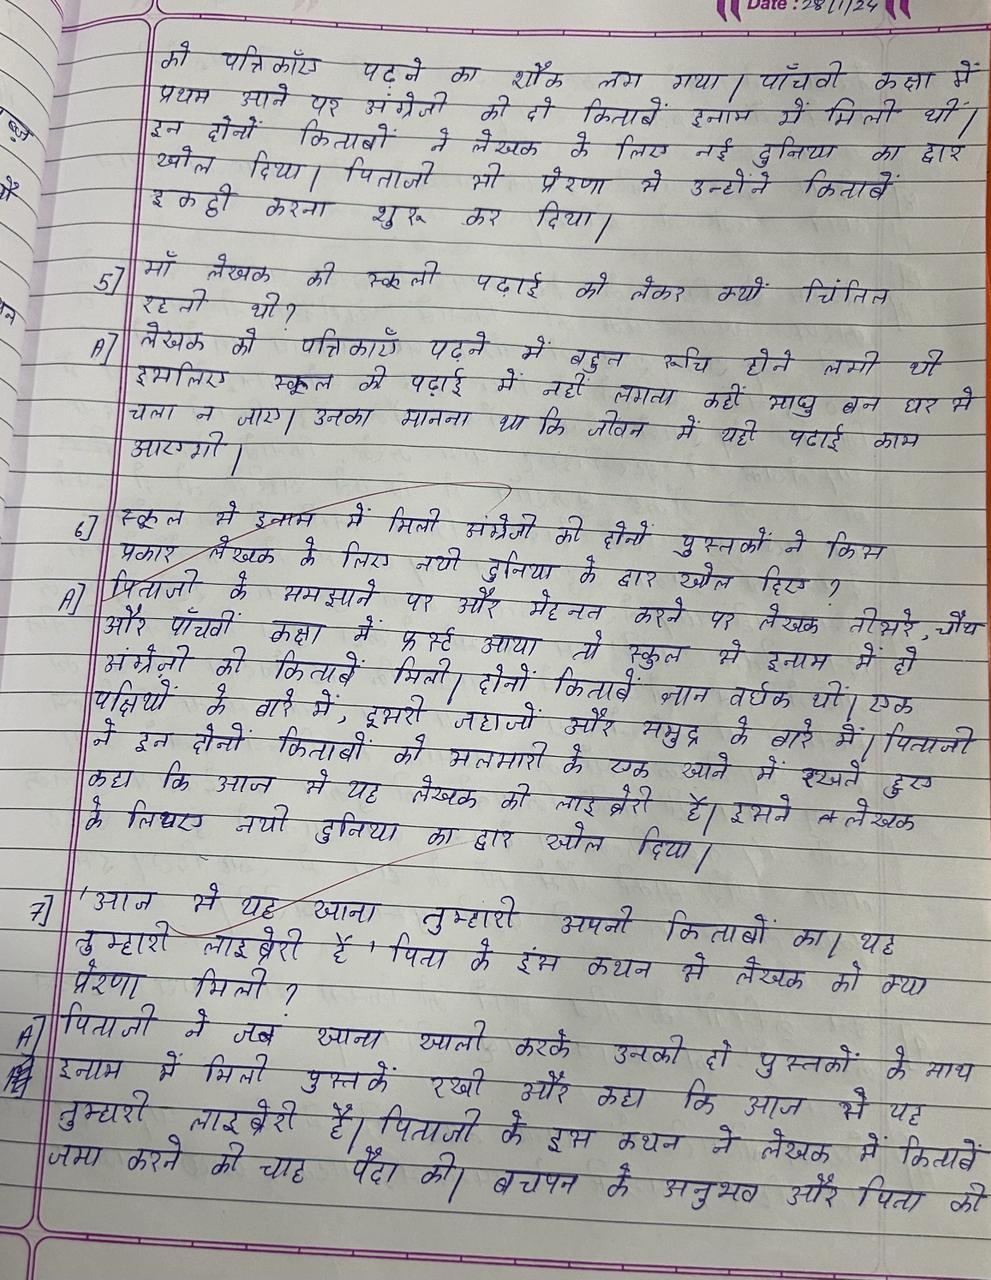 Date : 28/1/24
को पत्रिकाँए पढ़ने का शौक लग गया। पाँचवी कक्षा में
प्रथम आने पर अंग्रेजी की दो किताबें इनाम में मिली थीं।
इन दोनों किताबों ने लेखक के लिए नई दुनिया का द्वार
खोल दिया। पिताजी की प्रेरणा से उन्होंने किताबें
इकट्ठी करना शुरू कर दिया।
5] माँ लेखक की स्कूली पढ़ाई को लेकर क्यों चिंतित
रहती थी?
A] लेखक को पत्रिकाएँ पढ़ने में बहुत रूचि होने लगी थी
इसलिए स्कूल की पढ़ाई में नहीं लगता कहीं साधु बन घर से
चला न जाए। उनका मानना था कि जीवन में यही पढाई काम
आएगी।
6] स्कूल से इनाम में मिली अंग्रेजी की दोनों पुस्तकों ने किस
प्रकार लेखक के लिए नयी दुनिया के द्वार खोल दिए?
A] पिताजी के समझाने पर और मेहनत करने पर लेखक तीसरे, चौथे
और पाँचवीं कक्षा में फ़र्स्ट आया तो स्कुल से इनाम में दो
अंग्रेजी की किताबें मिली। दोनों किताबें ज्ञान वर्धक थीं। एक
पक्षियों के बारे में, दूसरी जहाजों और समुद्र के बारे में। पिताजी
ने इन दोनों किताबों को अलमारी के एक खाने में रखते हुए
कहा कि आज से यह लेखक की लाइब्रेरी हैं। इसने लेखक
के लिए नयी दुनिया का द्वार खोल दिया।
7] 'आज से यह खाना तुम्हारी अपनी किताबों का। यह
तुम्हारी लाइब्रेरी हैं' पिता के इस कथन से लेखक को क्या
प्रेरणा मिली?
A] पिताजी ने जब खाना खाली करके उनकी दो पुस्तकों के साथ
इनाम में मिली पुस्तकें रखी और कहा कि आज से यह
तुम्हारी लाइब्रेरी हैं। पिताजी के इस कथन ने लेखक में किताबें
जमा करने की चाह पैदा की। बचपन के अनुभव और पिता की